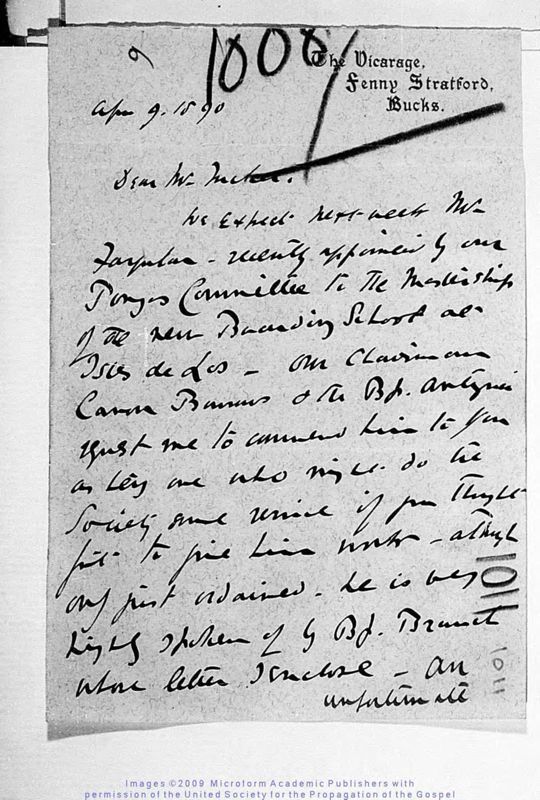 9
1008
The Vicarage,
Fenny Stratford,
Bucks.
Apr 9. 1890
Dear Mr Tucker.
We expect next week Mr
Farquhar - recently appointed by our
Pongas Committee to the Mastership
of the new Boarding School at
Isles de Los - our Chairman
Canon Barrows & the Bp. Antigua
request me to commend him to you
as being one who might do the
Society some service if you thought
fit to give him work - although
only just ordained. he is very
highly spoken of by Bp. Branch
whose letter I enclose - An
unfortunate
1011
1011
Images ©2009 Microform Academic Publishers with
permission of the United Society for the Propagation of the Gospel